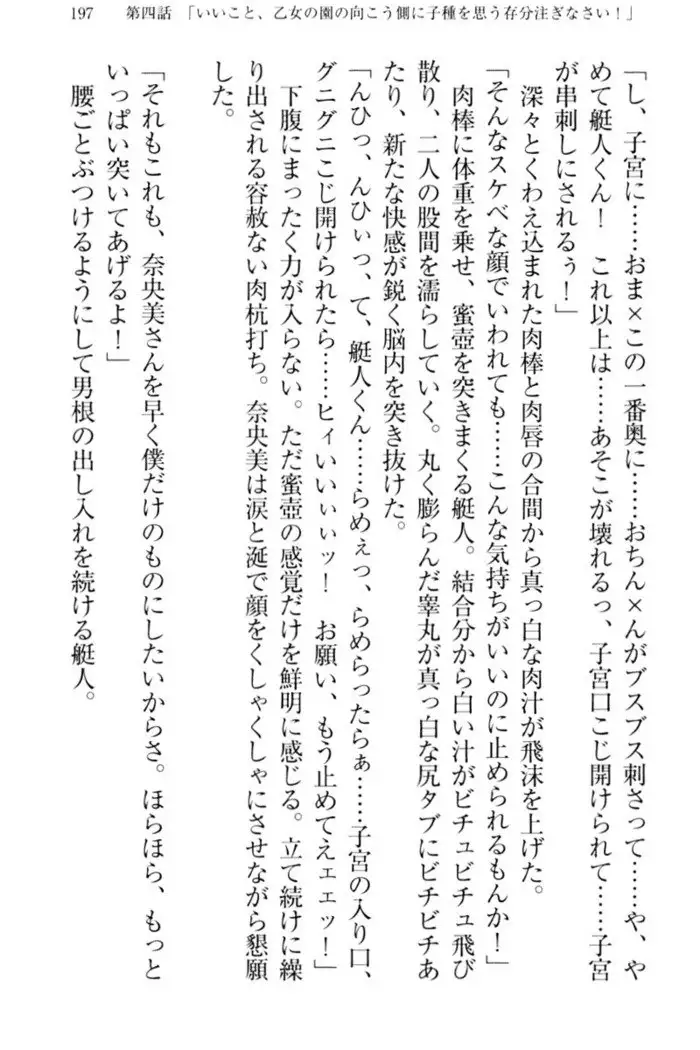 197　第四話　「いいこと、乙女の園の向こう側に子種を思う存分注ぎなさい！」
「し、子宮に……おま×この一番奥に……おちん×んがブスブス刺さって……や、や
めて艇人くん！　これ以上は……あそこが壊れるっ、子宮口こじ開けられて……子宮
が串刺しにされるぅ！」
　深々とくわえ込まれた肉棒と肉唇の合間から真っ白な肉汁が飛沫を上げた。
「そんなスケベな顔でいわれても……こんな気持ちがいいのに止められるもんか！」
　肉棒に体重を乗せ、蜜壺を突きまくる艇人。結合分から白い汁がビチュビチュ飛び
散り、二人の股間を濡らしていく。丸く膨らんだ睾丸が真っ白な尻タブにビチビチあ
たり、新たな快感が鋭く脳内を突き抜けた。
「んひっ、んひぃっ、て、艇人くん……らめぇっ、らめらったらぁ……子宮の入り口、
グニグニこじ開けられたら……ヒィいいぃぃッ！　お願い、もう止めてえェエッ！」
　下腹にまったく力が入らない。ただ蜜壺の感覚だけを鮮明に感じる。立て続けに繰
り出される容赦ない肉杭打ち。奈央美は涙と涎で顔をくしゃくしゃにさせながら懇願
した。
「それもこれも、奈央美さんを早く僕だけのものにしたいからさ。ほらほら、もっと
いっぱい突いてあげるよ！」
　腰ごとぶつけるようにして男根の出し入れを続ける艇人。